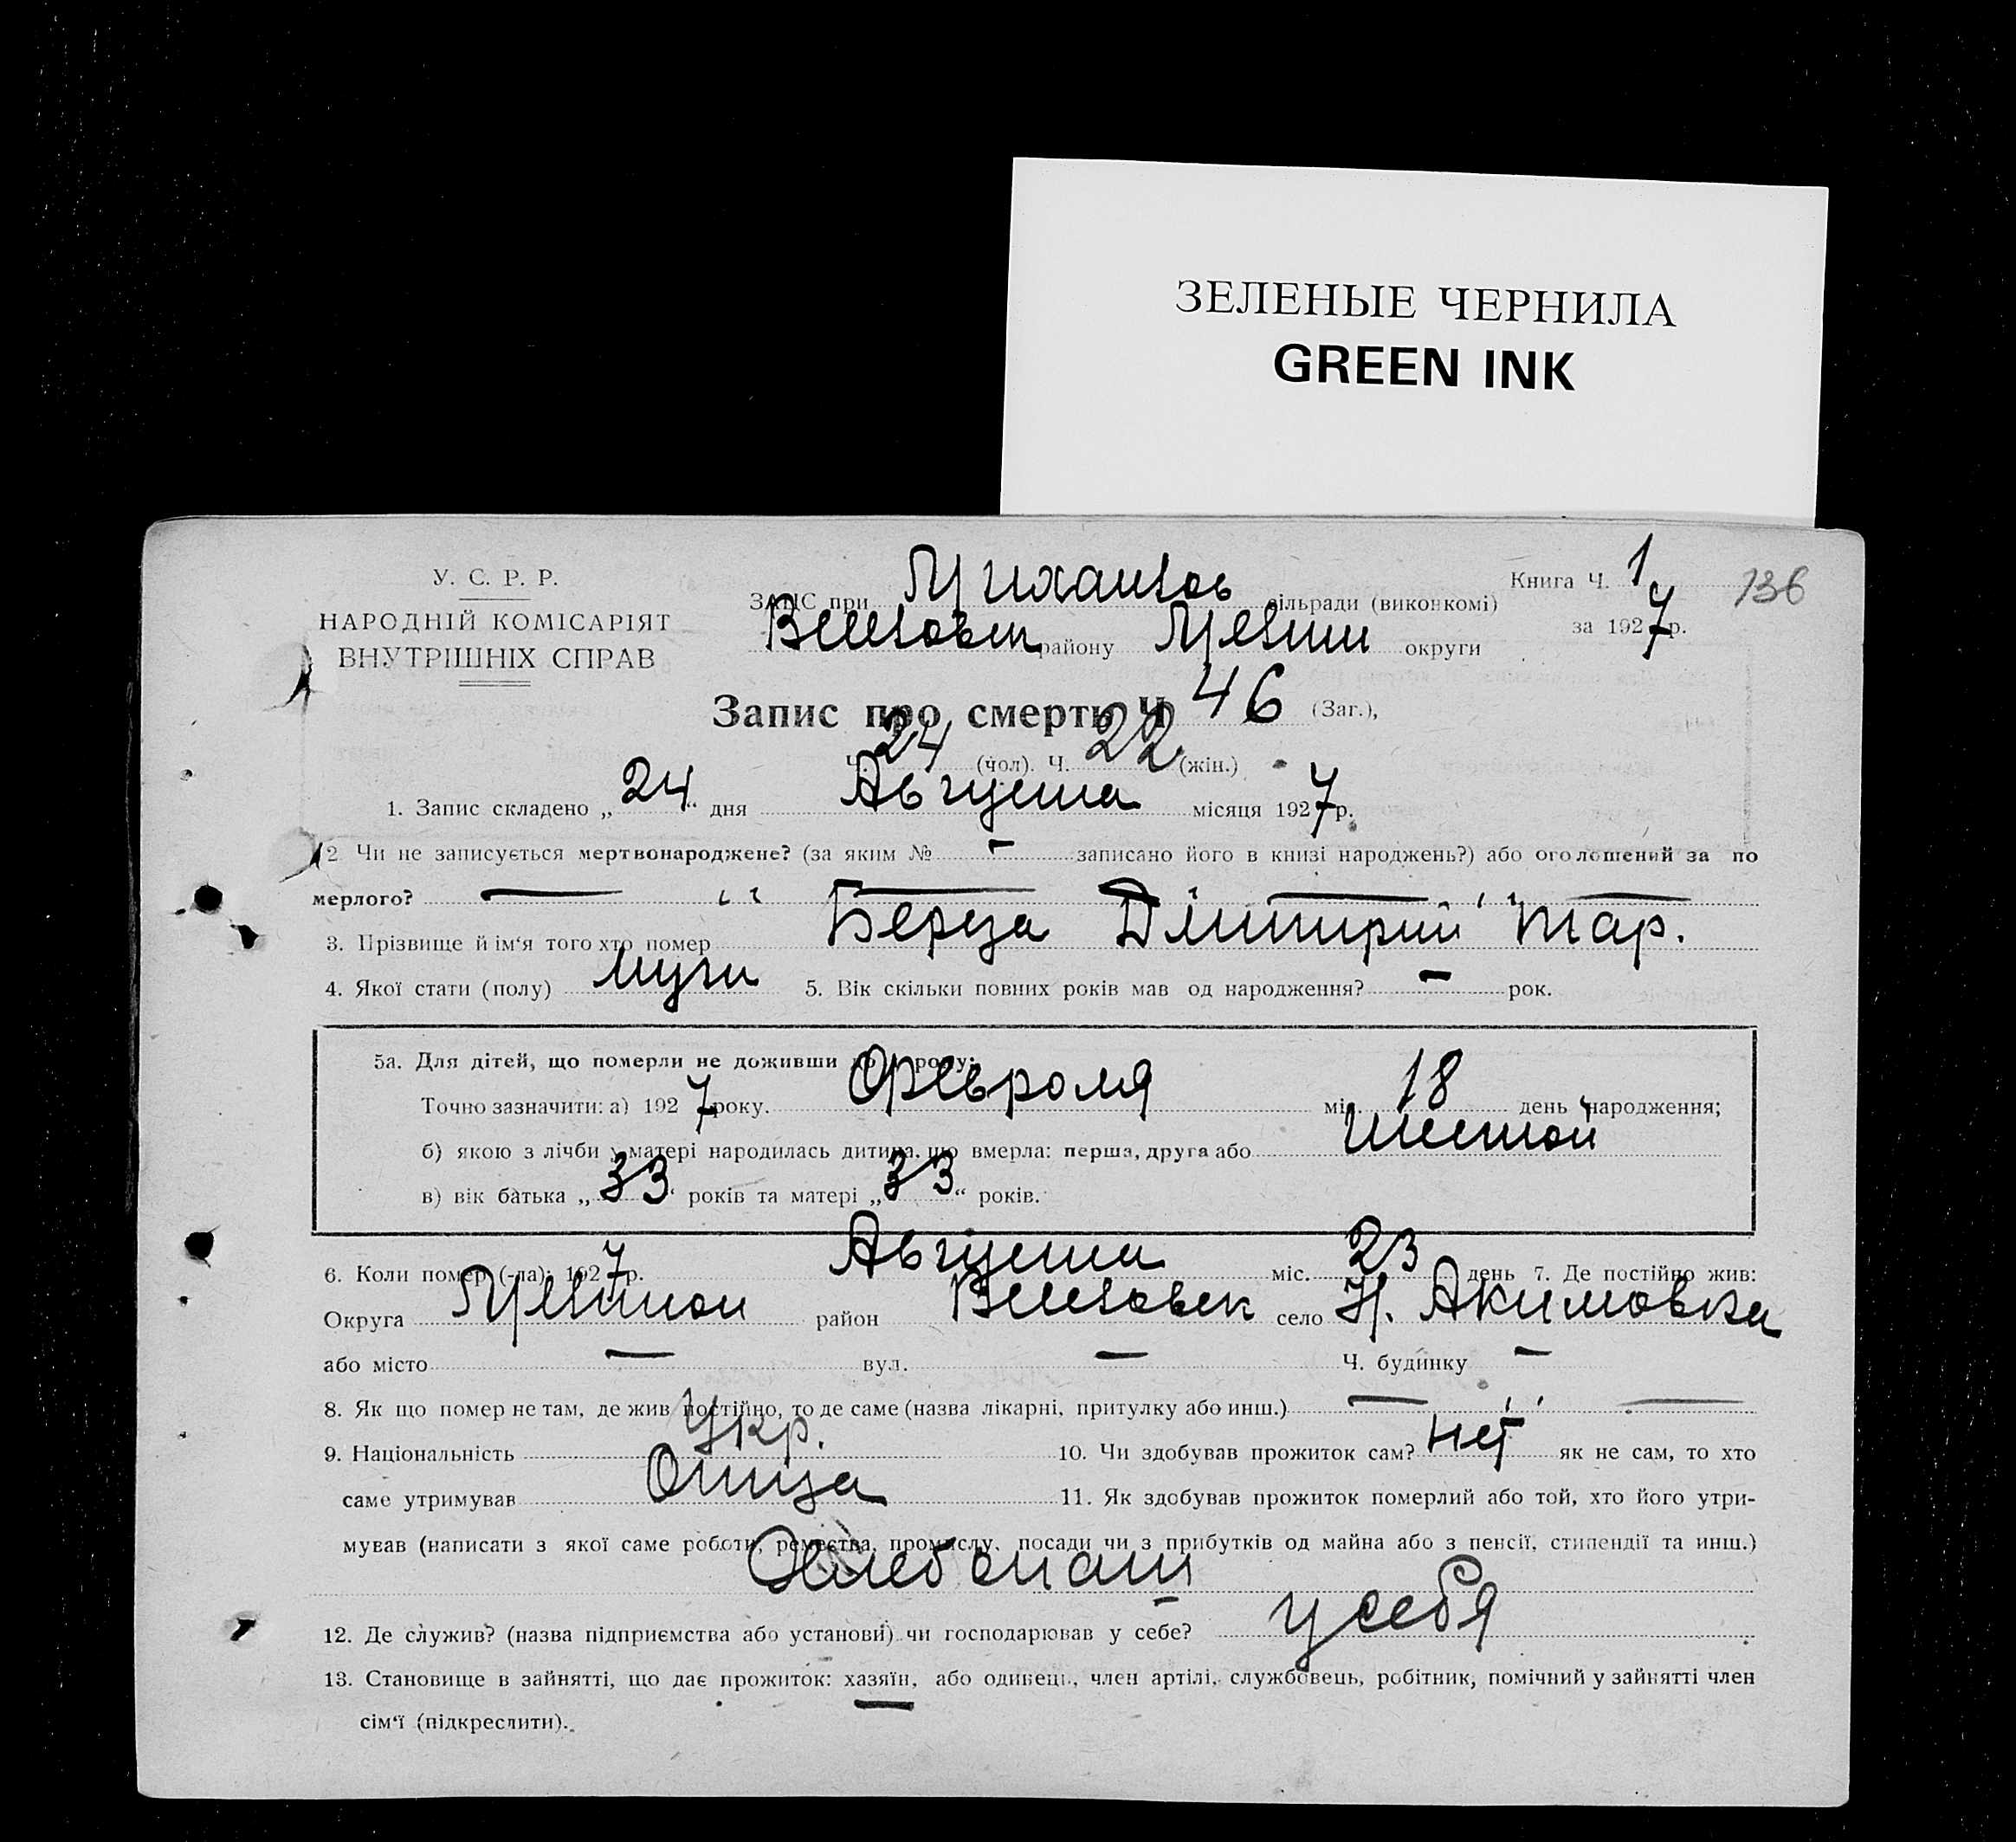 ЗЕЛЕНЫЕ ЧЕРНИЛА
GREEN INK
У. С. Р. Р.
НАРОДНІЙ КОМІСАРІЯТ
ВНУТРІШНІХ СПРАВ
ЗАГС при сільради (виконкомі)
району округи
Книга Ч. 1
136
за 1927 р.
Запис про смерть Ч 46 (Заг.),
Ч. 24 (чол). Ч. 22 (жін.)
1. Запис складено „24“ дня Августа місяця 1927 р.
2 Чи не записується мертвонароджене? (за яким № — записано його в книзі народжень?) або оголошений за по
мерлого? —
3. Прізвище й ім‘я того хто помер Берза Дмитрий Тар.
4. Якої стати (полу) 5. Вік скільки повних років мав од народження? — рок.
5а. Для дітей, що померли не доживши до 1 року:
Точно зазначити: а) 1927 року. Февроля міс. 18 день народження;
б) якою з лічби у матері народилась дитина, що вмерла: перша, друга або Шестой
в) вік батька „33“ років та матері „33“ років.
6. Коли помер (-ла): 1927 р. Августа міс. 23 день 7. Де постійно жив:
Округа район село Н. Акимовка
або місто — вул. — Ч. будинку —
8. Як що помер не там, де жив постійно, то де саме (назва лікарні, притулку або инш.) —
9. Національність Укр. 10. Чи здобував прожиток сам? нет як не сам, то хто
саме утримував Отца 11. Як здобував прожиток померлий або той, хто його утри-
мував (написати з якої саме роботи, ремества, промислу, посади чи з прибутків од майна або з пенсії, стипендії та инш.)
Хлебопаш
12. Де служив? (назва підприємства або установи) чи господарював у себе? у себя
13. Становище в зайнятті, що дає прожиток: хазяїн, або одинець, член артілі, службовець, робітник, помічний у зайнятті член
сім‘ї (підкреслити).